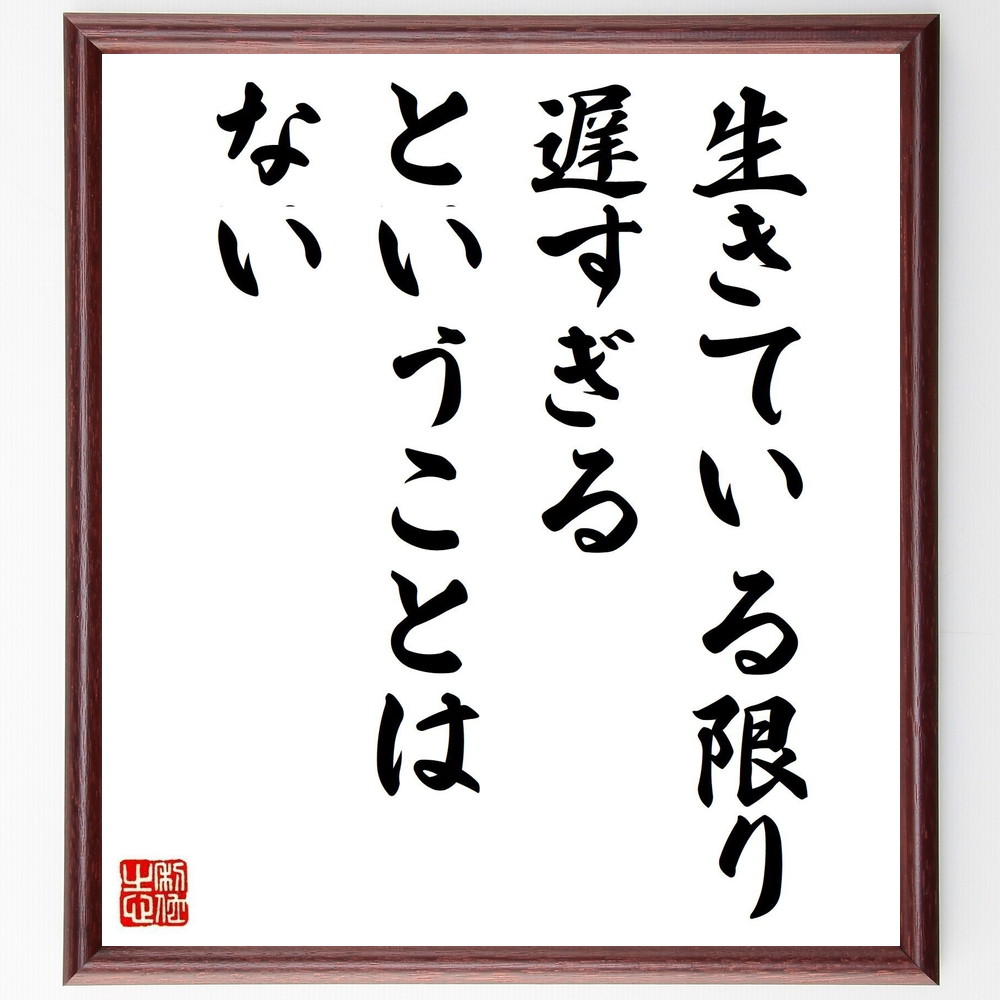 生きている限り
遅すぎる
ということは
ない